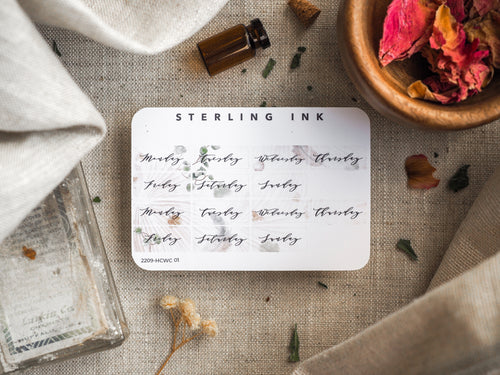 STERLING INK
Monday Tuesday Wednesday Thursday
Friday Saturday Sunday
Monday Tuesday Wednesday Thursday
Friday Saturday Sunday
2209-HCWC 01